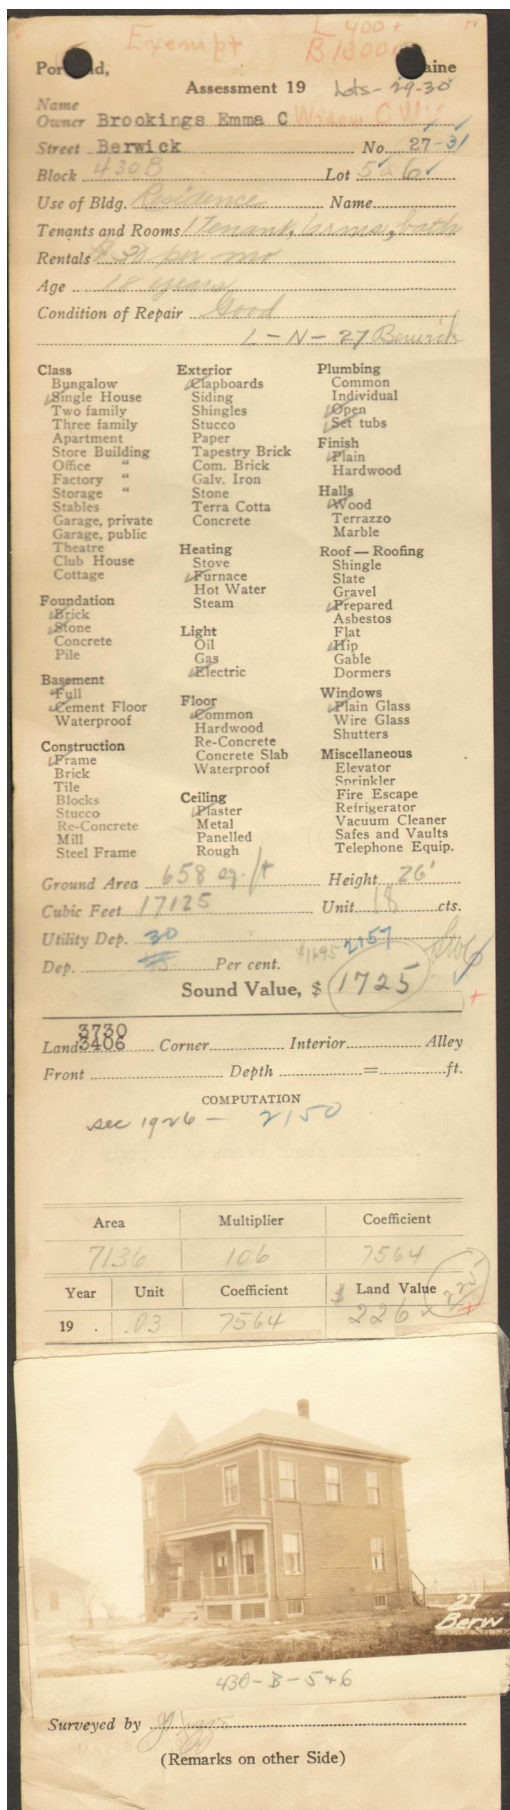 Exempt
L 400 +
B 1300
Portland, Maine
Assessment 19 Lots - 29-30
Name
Owner Brookings Emma C Widow C W
Street Berwick No. 27-31
Block 430B Lot 5 & 6
Use of Bldg. Residence Name
Tenants and Rooms 1 Tenant, 6 rms, bath
Rentals $30 per mo
Age 18 years
Condition of Repair Good
L-N-27 Berwick
Class
Bungalow
Single House
Two family
Three family
Apartment
Store Building
Office "
Factory "
Storage "
Stables
Garage, private
Garage, public
Theatre
Club House
Cottage
Foundation
Brick
Stone
Concrete
Pile
Basement
Full
Cement Floor
Waterproof
Construction
Frame
Brick
Tile
Blocks
Stucco
Re-Concrete
Mill
Steel Frame
Exterior
Clapboards
Siding
Shingles
Stucco
Paper
Tapestry Brick
Com. Brick
Galv. Iron
Stone
Terra Cotta
Concrete
Heating
Stove
Furnace
Hot Water
Steam
Light
Oil
Gas
Electric
Floor
Common
Hardwood
Re-Concrete
Concrete Slab
Waterproof
Ceiling
Plaster
Metal
Panelled
Rough
Plumbing
Common
Individual
Open
Set tubs
Finish
Plain
Hardwood
Halls
Wood
Terrazzo
Marble
Roof — Roofing
Shingle
Slate
Gravel
Prepared
Asbestos
Flat
Hip
Gable
Dormers
Windows
Plain Glass
Wire Glass
Shutters
Miscellaneous
Elevator
Sprinkler
Fire Escape
Refrigerator
Vacuum Cleaner
Safes and Vaults
Telephone Equip.
Ground Area 658 sq. ft Height 26'
Cubic Feet 17125 Unit 18 cts.
Utility Dep. 30 2157
Dep. Per cent. $1695
Sound Value, $ 1725 +
3730
Land 3406 Corner Interior Alley
Front Depth = ft.
COMPUTATION
see 1926 - 2150
Area Multiplier Coefficient
7136 106 7564
Year Unit Coefficient $ Land Value 225
19 . .03 7564 226 +
27
Berw
430-B-5+6
Surveyed by
(Remarks on other Side)